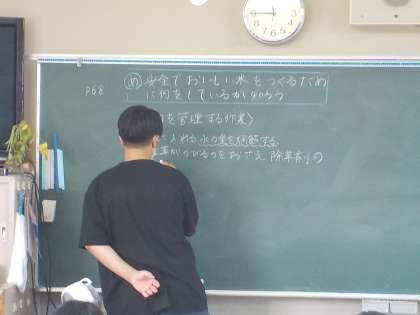 P68
め 安全でおいしい米をつくるため
に何をしているか知ろう
を管理する作業〉
入れる水の量を調節する
草がのびるのをおさえ 除草剤の